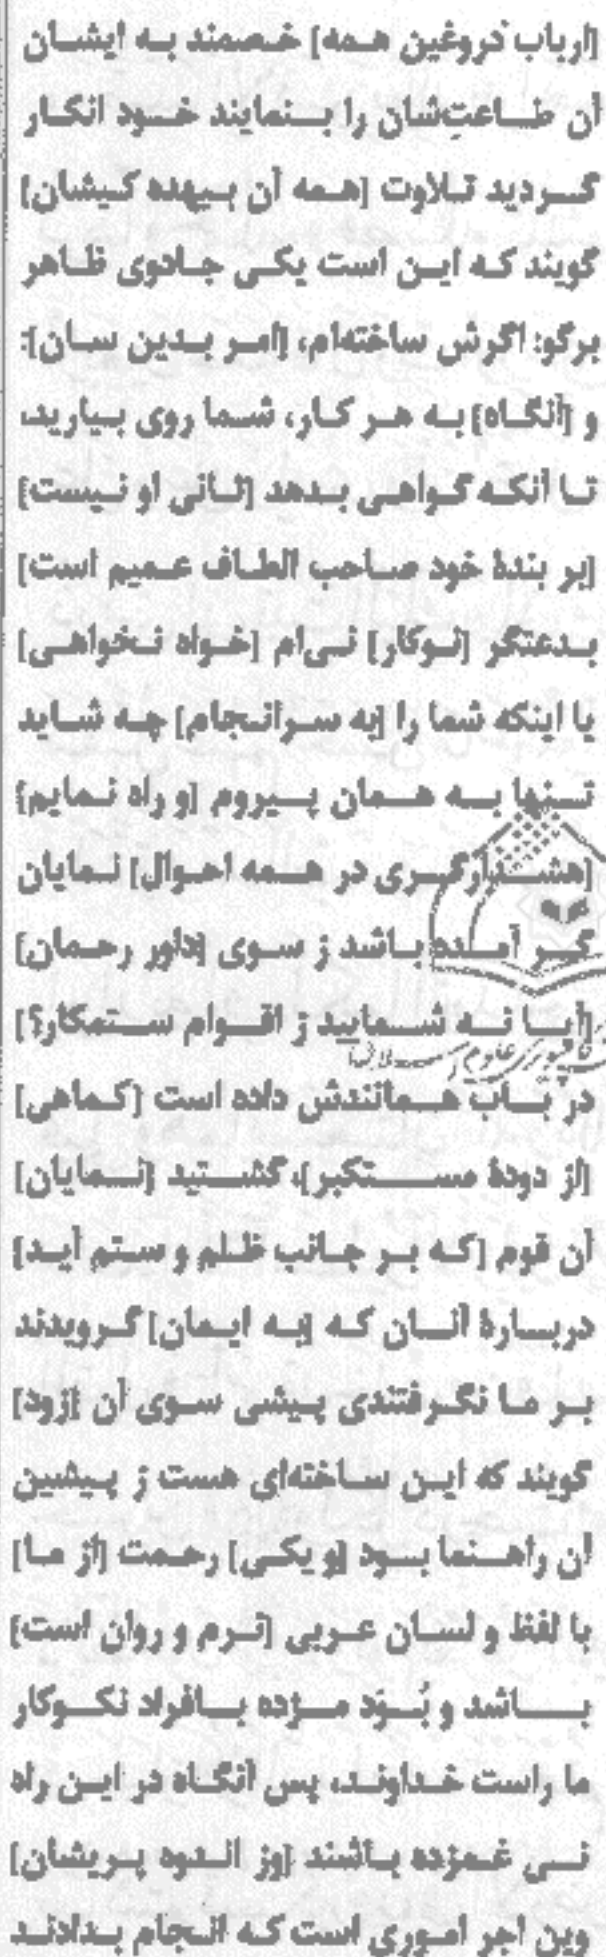 [ارباب دروغین همه] خصمند به ایشان
آن طاعتِشان را بنمایند خود انکار
گردید تلاوت [همه آن بیهده کیشان]
گویند که این است یکی جادوی ظاهر
برگو: اگرش ساخته‌ام، [امر بدین سان]:
و [آنگاه] به هر کار، شما روی بیارید،
تا آنکه گواهی بدهد [ثانی او نیست]
[بر بندهٔ خود صاحب الطاف عمیم است]
بدعتگر [نوکار] نی‌ام [خواه نخواهی]
یا اینکه شما را [به سرانجام] چه شاید
تنها به همان پیروم [و راه نمایم]
[هشدارگری در همه احوال] نمایان
گر آمده باشد ز سوی [داور رحمان]
[آیا نه شمایید ز اقوام ستمکار؟]
در باب همانندش داده است [کماهی]
[از دودهٔ مستکبر]، گشتید [نمایان]
آن قوم [که بر جانب ظلم و ستم آید]
دربارهٔ آنان که [به ایمان] گرویدند
بر ما نگرفتندی پیشی سوی آن [زود]
گویند که این ساخته‌ای هست ز پیشین
آن راهنما بود [و یکی] رحمت [از ما]
با لفظ و لسان عربی [نرم و روان است]
باشد و بُوَد مژده بافراد نکوکار
ما راست خداوند، پس آنگاه در این راه
نی غمزده باشند [وز اندوه پریشان]
وین اجر اموری است که انجام بدادند